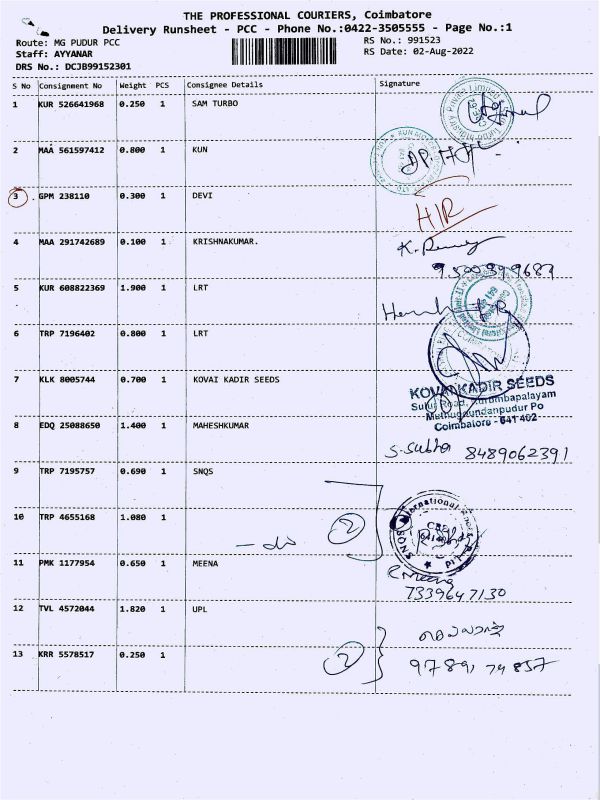 THE PROFESSIONAL COURIERS, Coimbatore
Delivery Runsheet - PCC - Phone No.:0422-3505555 - Page No.:1
Route: MG PUDUR PCC
RS No.: 991523
Staff: AYYANAR
RS Date: 02-Aug-2022
DRS No.: DCJB99152301
S No Consignment No Weight PCS Consignee Details Signature
1 KUR 526641968 0.250 1 SAM TURBO
2 MAA 561597412 0.800 1 KUN
3 GPM 238110 0.300 1 DEVI
4 MAA 291742689 0.100 1 KRISHNAKUMAR.
5 KUR 608822369 1.900 1 LRT
6 TRP 7196402 0.800 1 LRT
7 KLK 8005744 0.700 1 KOVAI KADIR SEEDS
KOVAI KADIR SEEDS
Sulur Road, Kurumbapalayam
Muthugoundanpudur Po
Coimbatore - 641 402
8 EDQ 25088650 1.400 1 MAHESHKUMAR
S. Subha 8489062391
9 TRP 7195757 0.690 1 SNQS
10 TRP 4655168 1.080 1
2
11 PMK 1177954 0.650 1 MEENA
R Meena
7339647130
12 TVL 4572044 1.820 1 UPL
13 KRR 5578517 0.250 1
2
9789174857